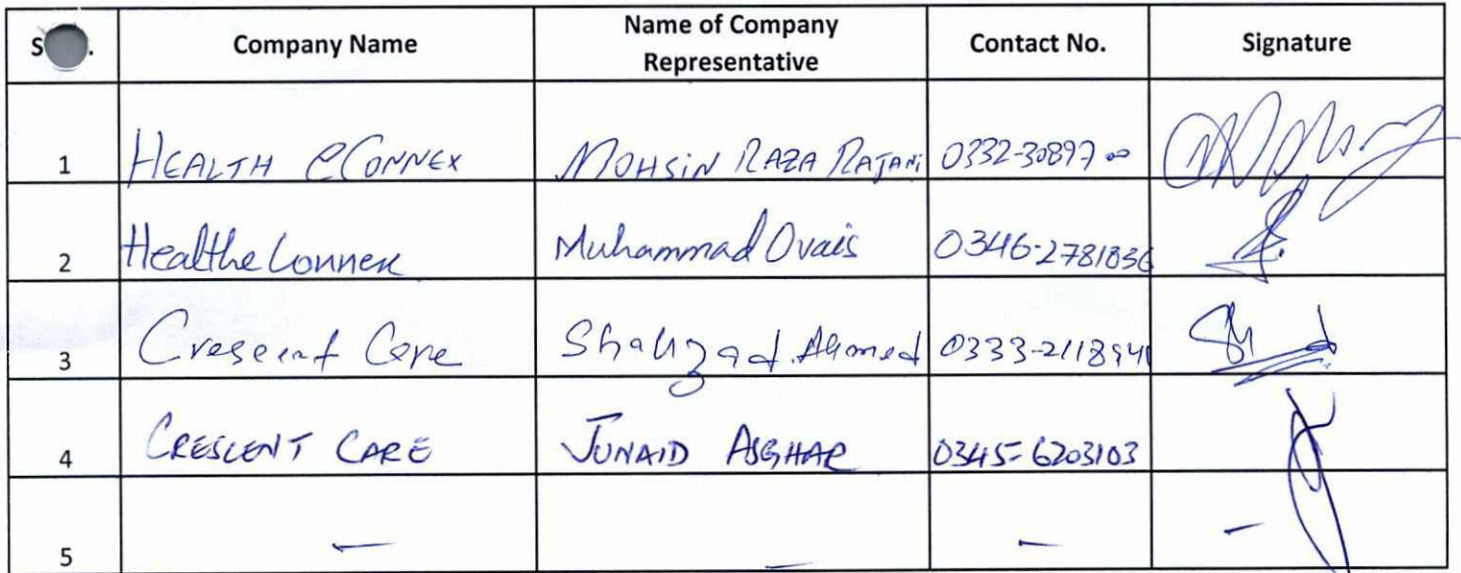 S .	Company Name	Name of Company Representative	Contact No.	Signature
1	HEALTH eCONNEX	MOHSIN RAZA RAJANI	0332-3089700
2	Healthe Connex	Muhammad Ovais	0346-2781836
3	Crescent Care	Shahzad Ahmed	0333-2118941
4	CRESCENT CARE	JUNAID ASGHAR	0345-6203103
5	-	-	-	-